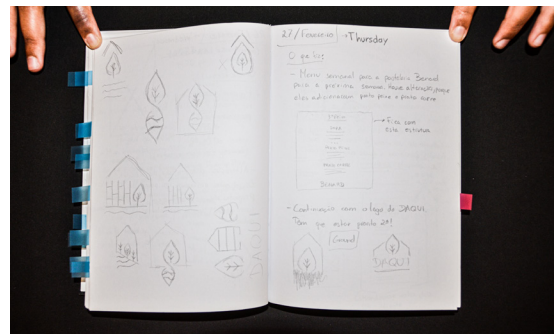 DAQUI
27/Fevereiro → Thursday
O que fiz:
- Menu semanal para a pastelaria Bernad
para a próxima semana. Houve alteração, porque
eles adicionaram prato peixe e prato carne.
→ Fica com
esta estrutura
- Continuação com o logo do DAQUI.
Tem que estar pronto 2ª!
DAQUI